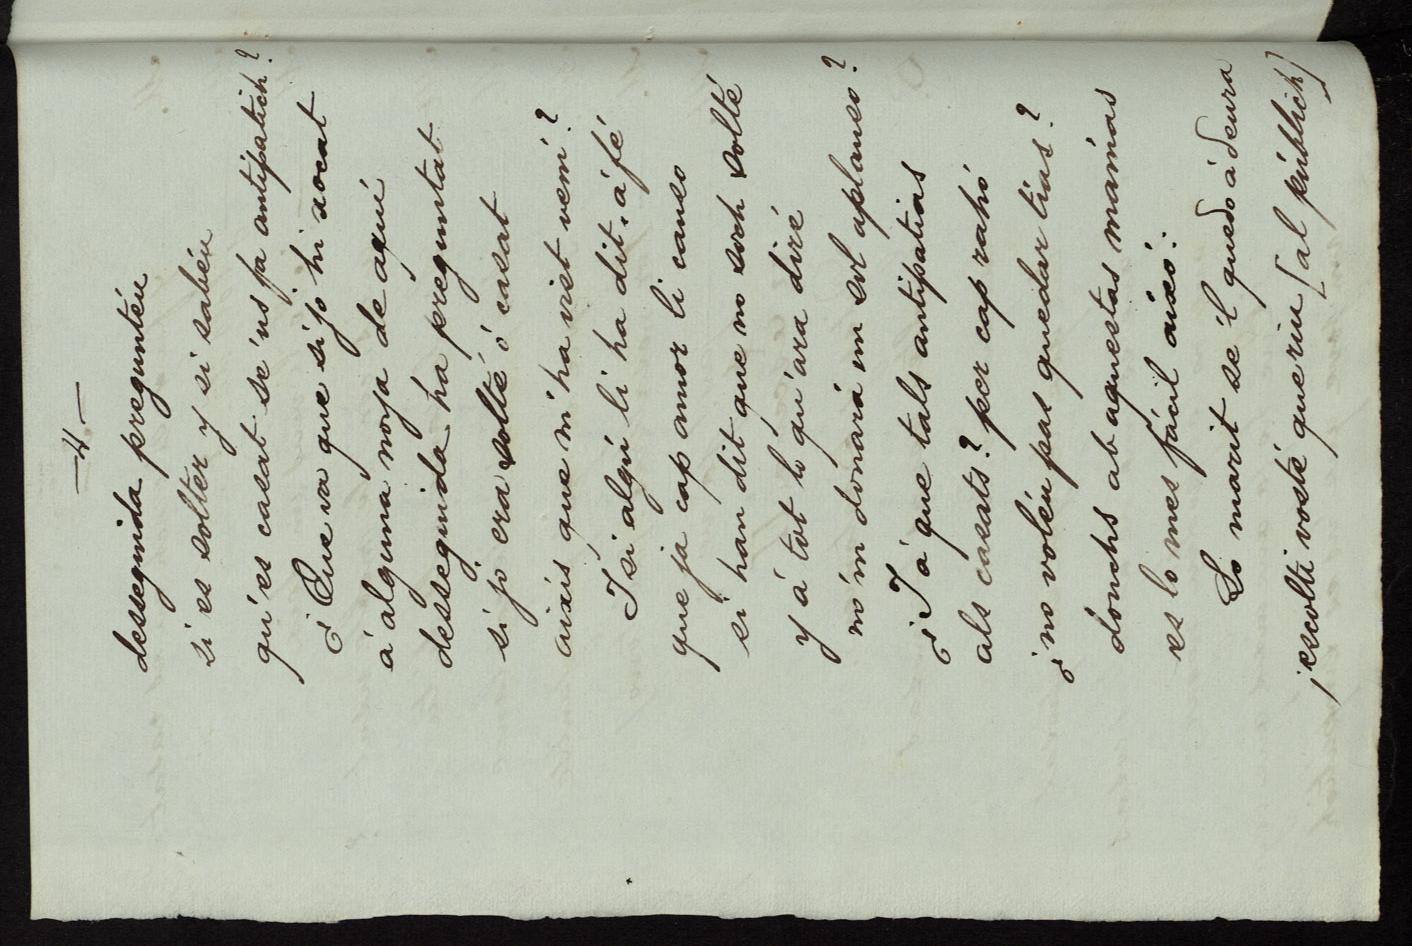 —4—
desseguida preguntéu
si es solter y si sabéu
qu'es casat se'us fa antipatich?
¿Que va que si jo hi socat
á alguna noya de aquí
desseguida ha preguntat
si jo era solté ó casat
aixís que m'ha vist vení?
I si algú li ha dit, á fé
que ja cap amor li causo
si han dit que no soch solté
y á tot lo qu'ara diré
no'm donará un sol aplauso?
¿I á que tals antipatias
als casats? per cap rahó
¿no voléu pas quedar tias?
donchs ab aquestas mánias
es lo mes fácil aixó.
Lo marit se'l quedo á deura
¡escolti vosté que riu [al públich]